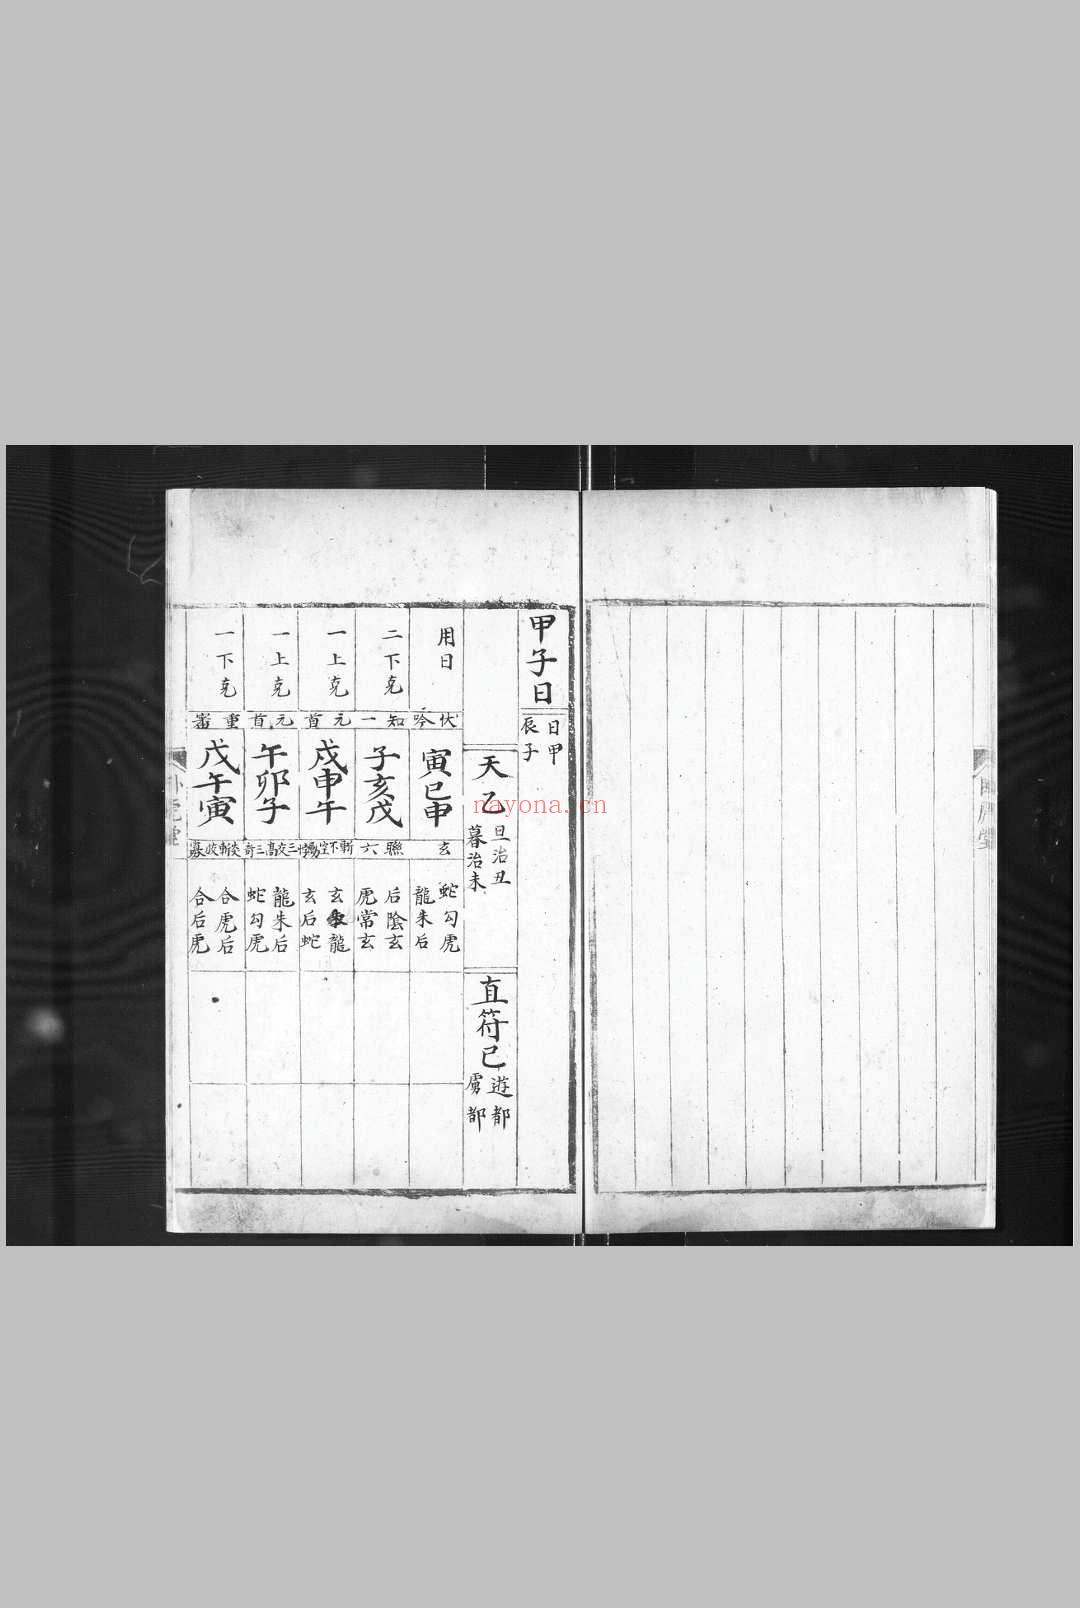 甲子日
日甲
辰子
天乙
旦治丑
暮治未
直符巳
遊都
虜都
用日
伏吟
寅巳申
玄
蛇勾虎
龍朱后
二下克
知一
子亥戌
聯六
后陰玄
虎常玄
一上克
元首
戌申午
玄
龍
玄后蛇
一上克
元首
午卯子
三交高三奇
龍朱后
蛇勾虎
一下克
重審
戌午寅
合虎后
合后虎
nayona.cn